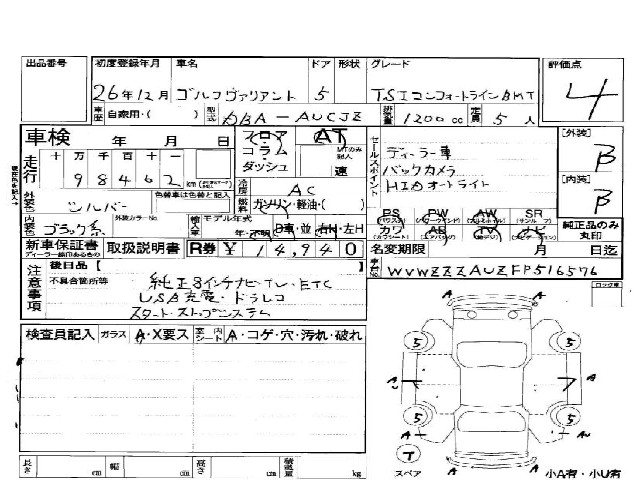 出品番号 初度登録年月 車名 ドア 形状 グレード 評価点
26年12月 ゴルフヴァリアント 5 TSIコンフォートラインBMT 4
車歴 自家用・( ) 型式 DBA-AUCJZ 排気量 1200cc 定員 5人
車検 年 月 日 フロア コラム ダッシュ AT MTのみ記入 速
セールスポイント ディーラー車
バックカメラ
HIDオートライト
[外装] B
[内装] B
走行 十万千百十
98462 km
冷房 AC
燃料 ガソリン・軽油・( )
外装色 シルバー 色替車は色替と記入
内装色 ブラック系 外装カラーNo. 輸入車 モデル年式 年・不明 D車・並 右H・左H
PS PW AW SR
カワ AB TV ナビ
純正品のみ丸印
新車保証書 取扱説明書 R券 ¥14,940
ディーラー捺印あるもの
名変期限 月 日迄
車台No. WVWZZZAUZFP516576
注意事項 後日品【
不具合箇所等 純正8インチナビTV・ETC
USA充電・ドラレコ
スタートストップシステム
ロック車
検査員記入 ガラス A・X要ス 室内シート A・コゲ・穴・汚れ・破れ
A A
5 5
A A
5 5
A AU
T
スペア A A 小A有・小U有
長さ cm 幅 cm 高さ cm 積載量 kg